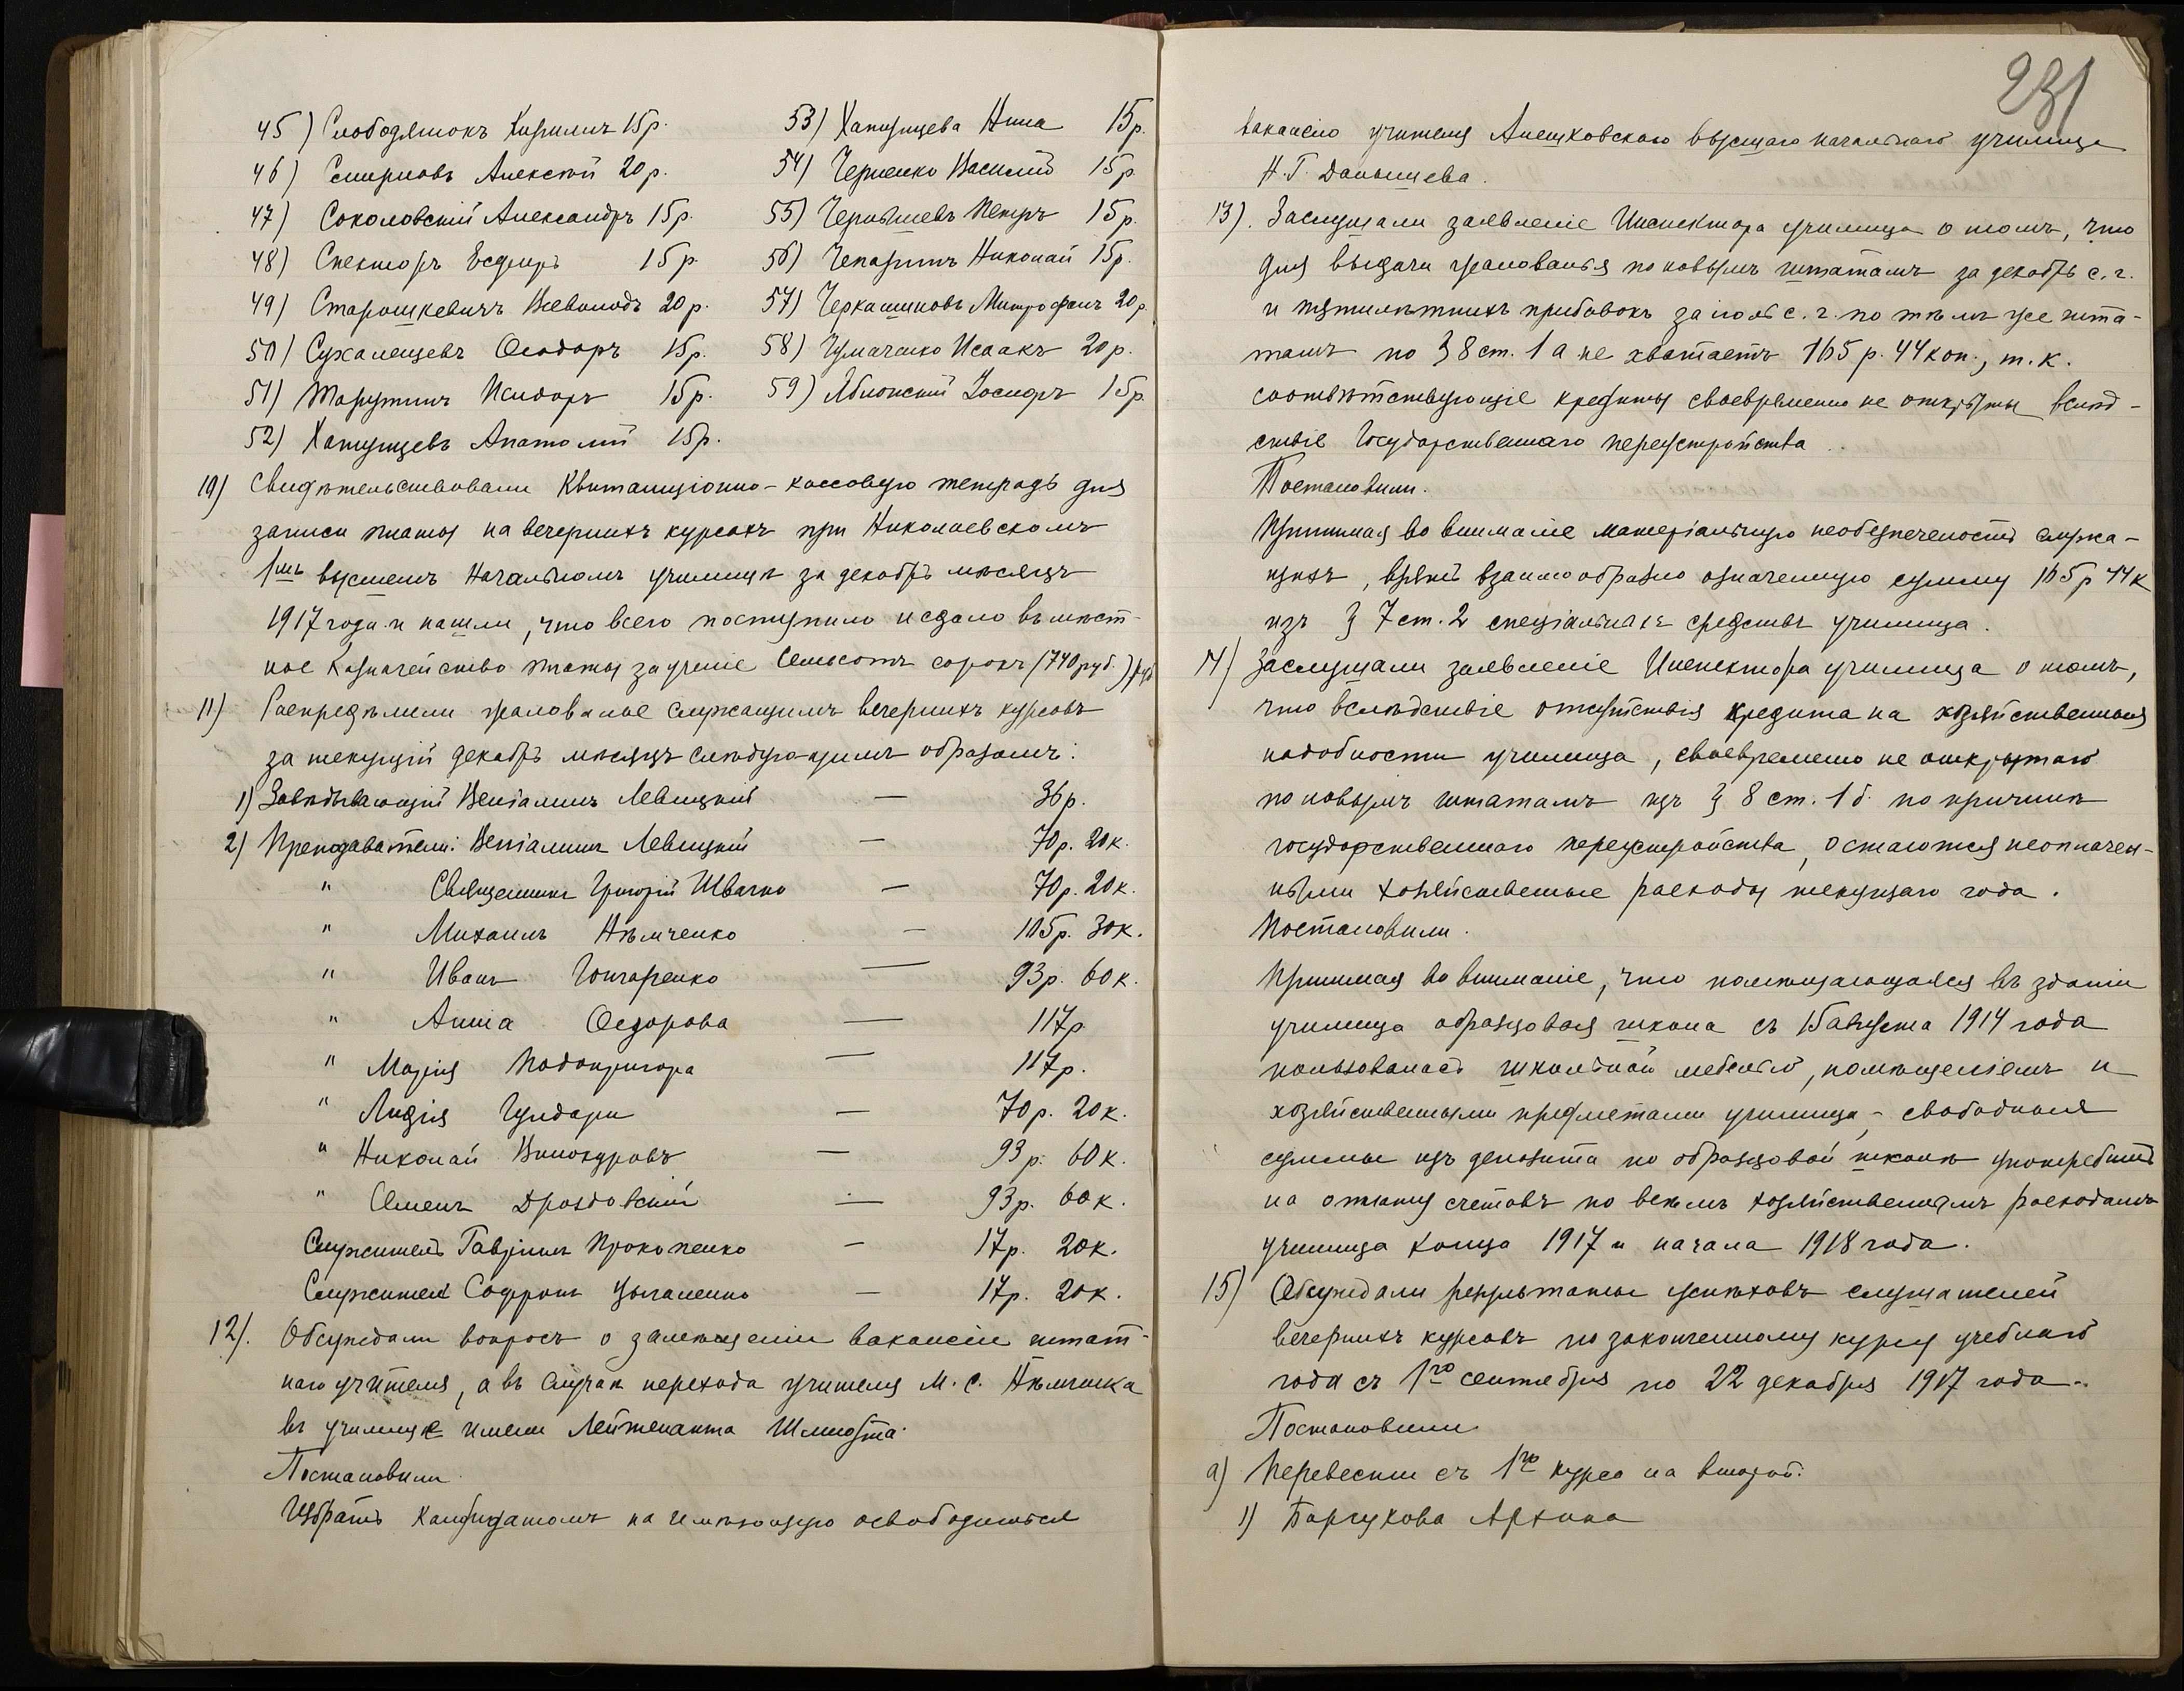 45) Слободянюкъ Кириллъ 15 р.
46) Смирновъ Алексѣй 20 р.
47) Соколовскій Александръ 15 р.
48) Спекторъ Есфирь 15 р.
49) Старошкевичъ Всеволодъ 20 р.
50) Сухалещевъ Ѳеодоръ 15 р.
51) Тарутинъ Исидоръ 15 р.
52) Хапущевъ Анатолій 15 р.
53) Хапущева Нина 15 р.
54) Черненко Василій 15 р.
55) Чернышевъ Петръ 15 р.
56) Чепаринъ Николай 15 р.
57) Черкашиновъ Митрофанъ 20 р.
58) Чумаченко Исаакъ 20 р.
59) Яблонскій Іосифъ 15 р.
10) Свидѣтельствовали Квитанціонно-кассовую тетрадь для
записи платы на вечернихъ курсахъ при Николаевскомъ
1мъ высшемъ Начальномъ училищѣ за декабрь мѣсяцъ
1917 года и нашли, что всего поступило и сдано въ мѣст-
ное Казначейство платы за ученіе Семьсотъ сорокъ (740 руб.) руб
11) Распредѣлили жалованье служащимъ вечернихъ курсовъ
за текущій декабрь мѣсяцъ слѣдующимъ образомъ:
1) Завѣдывающій Веніаминъ Левицкій — 36 р.
2) Преподаватели: Веніаминъ Левицкій — 70 р. 20 к.
" Священникъ Григорій Швачко — 70 р. 20 к.
" Михаилъ Нѣмченко — 105 р. 30 к.
" Иванъ Гончаренко — 93 р. 60 к.
" Анна Ѳедорова — 117 р
" Марія Подопригора — 117 р.
" Лидія Гулдари — 70 р. 20 к.
" Николай Винокуровъ — 93 р. 60 к.
" Семенъ Дроздовскій — 93 р. 60 к.
Служитель Гавріилъ Прокопенко — 17 р. 20 к.
Служитель Софронъ Цыганенко — 17 р. 20 к.
12). Обсуждали вопросъ о замѣщеніи вакансіи штат-
наго учителя, а въ случаѣ перехода учителя М. С.
въ училище имени Лейтенанта Шмидта.
Постановили
Избрать Кандидатомъ на имѣющую освободиться
231
вакансію учителя Алешковскаго высшаго начальнаго училища
Н. Г. Данышева.
13). Заслушали заявленіе Инспектора училища о томъ, что
для выдачи жалованья по новымъ штатамъ за декабрь с. г.
и пятилѣтнихъ прибавокъ за іюль с. г. по тѣмъ же шта-
тамъ по § 8 ст. 1 а не хватаетъ 165 р. 44 коп., т. к.
соотвѣтствующіе кредиты своевременно не открыты вслѣд-
ствіе Государственнаго переустройства.
Постановили.
Принимая во вниманіе матеріальную необезпеченость служа-
щихъ, взять взаимообразно означенную сумму 165 р 44 к
изъ § 7 ст. 2 спеціальныхъ средствъ училища.
14) Заслушали заявленіе Инспектора училища о томъ,
что вслѣдствіе отсутствія кредита на хозяйственныя
надобности училища, своевременно не открытаго
по новымъ штатамъ изъ § 8 ст. 1 б. по причинѣ
государственнаго переустройства, остаются неоплачен-
ными хозяйственные расходы текущаго года.
Постановили.
Принимая во вниманіе, что помѣщающаяся въ зданіи
училища образцовая школа съ 15 августа 1914 года
пользовалась школьной мебелью, помѣщеніемъ и
хозяйственными предметами училища, - свободныя
суммы изъ депозита по образцовой школѣ употребить
на оплату счетовъ по всѣмъ хозяйственнымъ расходамъ
училища конца 1917 и начала 1918 года.
15) Обсуждали результаты успѣховъ слушателей
вечернихъ курсовъ по законченному курсу учебнаго
года съ 1го сентября по 22 декабря 1917 года.
Постановили
а) Перевести съ 1го курса на второй:
1) Барчукова Архипа